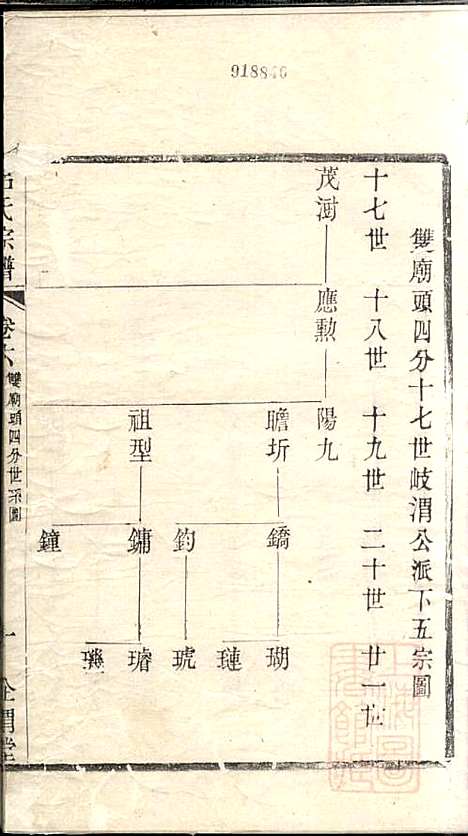 918840
雙廟頭四分十七世岐渭公派下五宗圖
十七世 十八世 十九世 二十世 廿一世
茂澍 應勲 陽九
瞻圻 鐈 瑚 璉
釣 琥
祖型 鏞 璿 璣
鐘
氏宗譜 卷六 雙廟頭四分世系圖 一